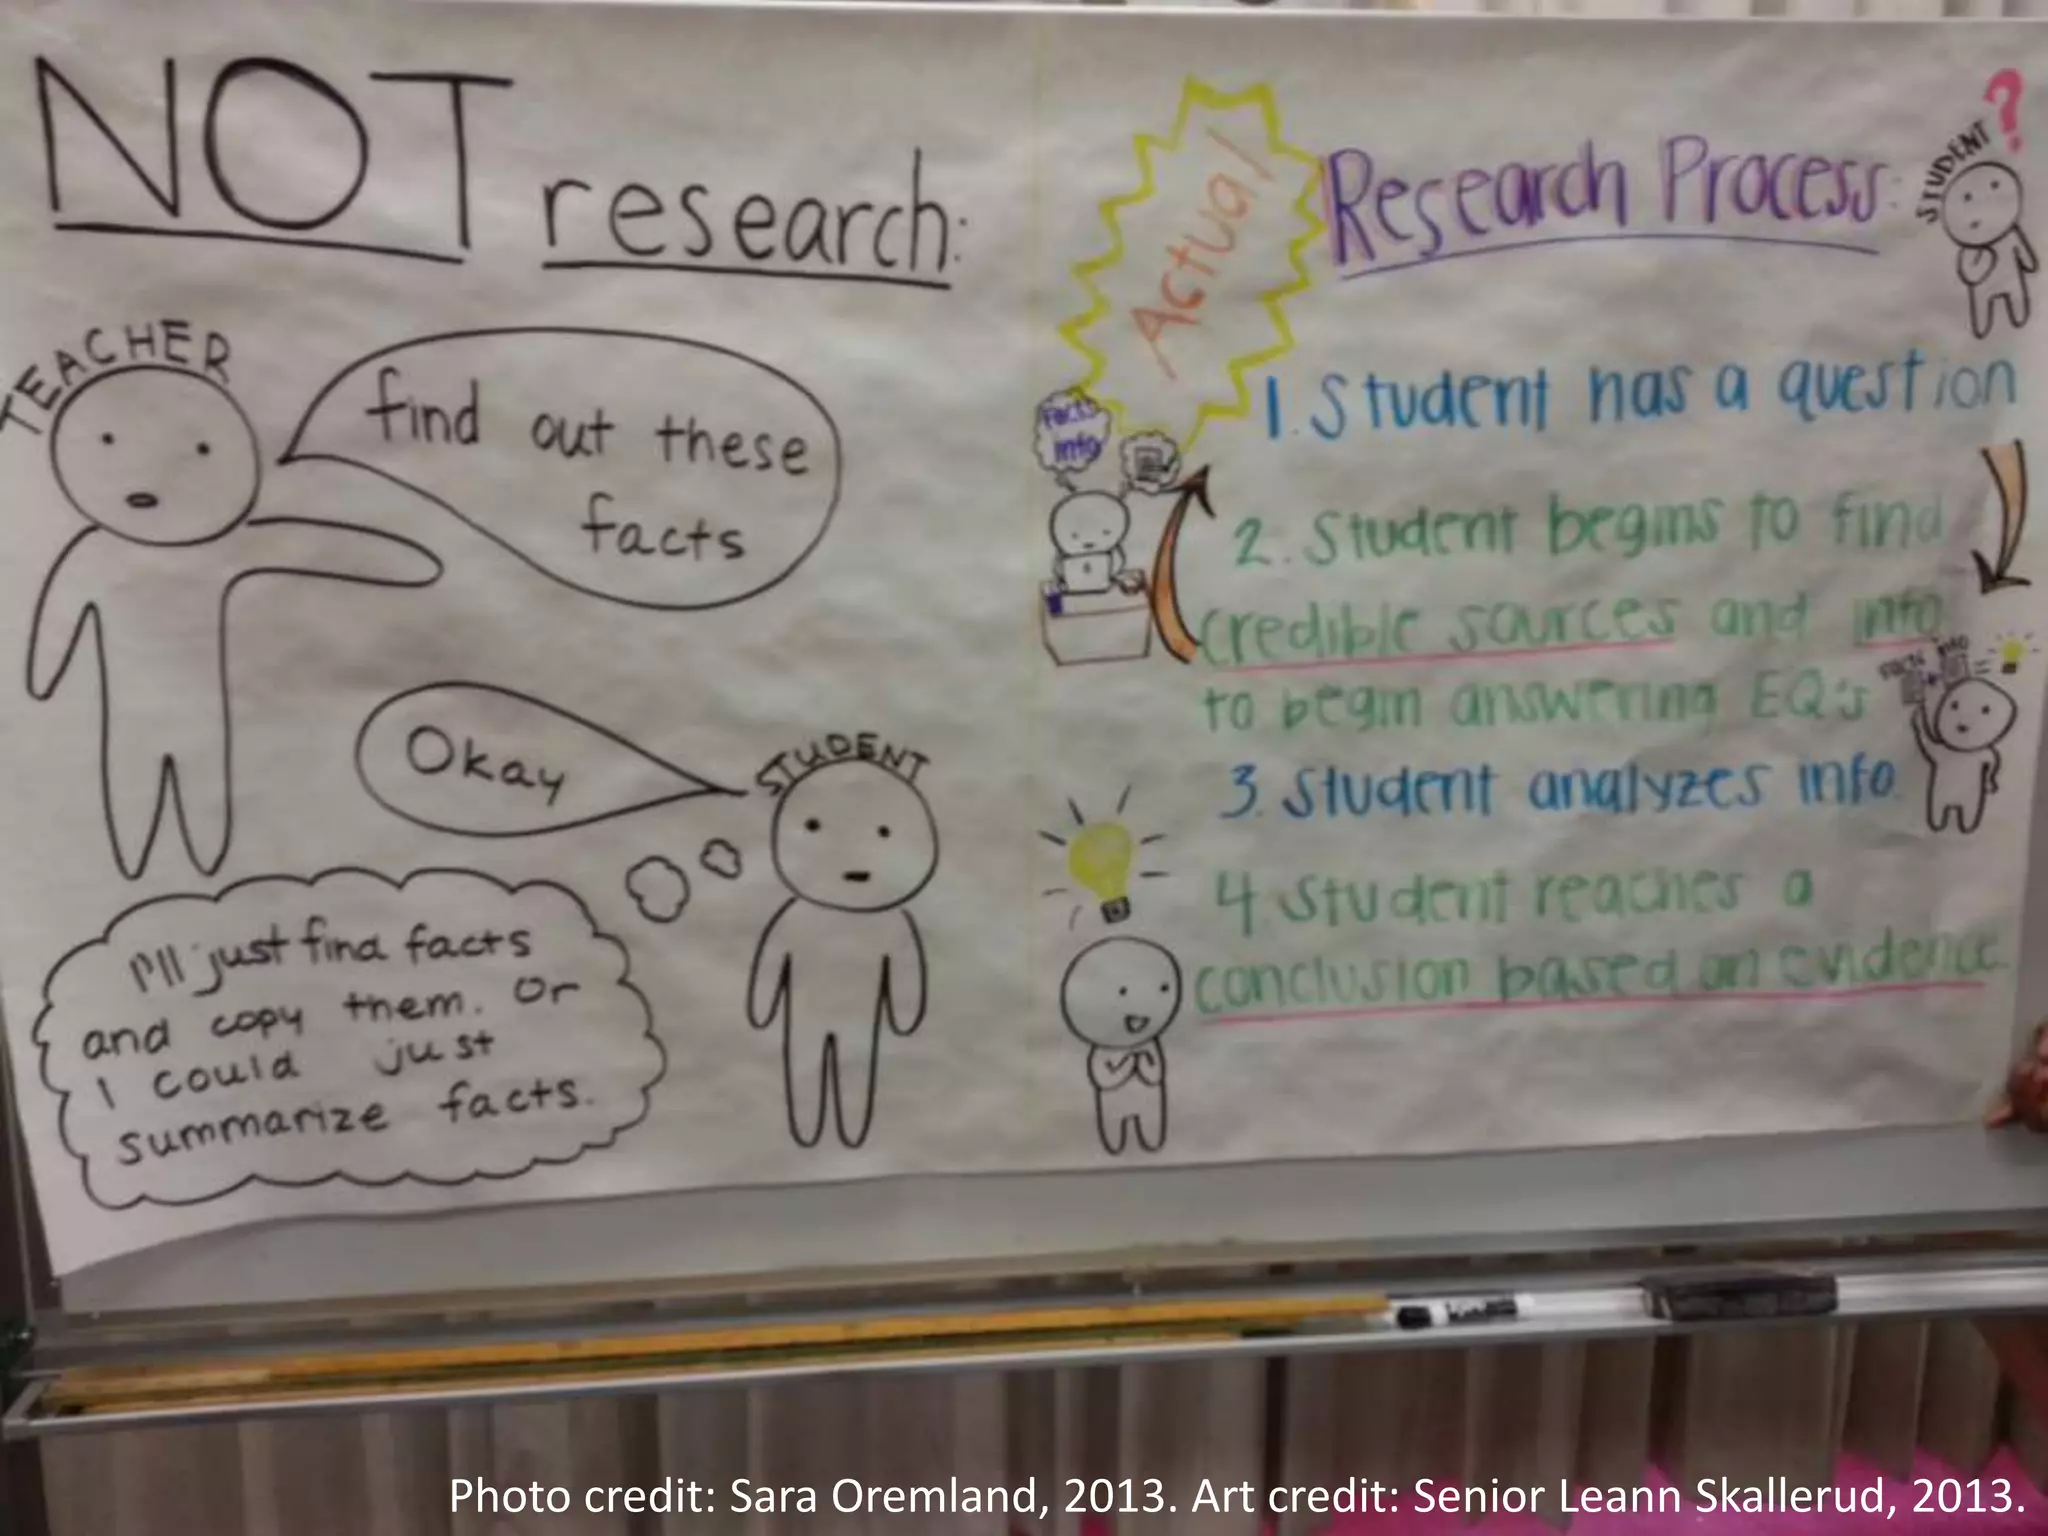 NOT research:
TEACHER
find out these
facts
Okay
STUDENT
I'll just find facts
and copy them. Or
I could just
summarize facts.
Actual
Research Process:
STUDENT ?
1. Student has a question
Facts
Info
2. Student begins to find
credible sources and info
to begin answering EQ's
Facts + Info =
3. Student analyzes info.
4. Student reaches a
conclusion based on evidence.
Photo credit: Sara Oremland, 2013. Art credit: Senior Leann Skallerud, 2013.